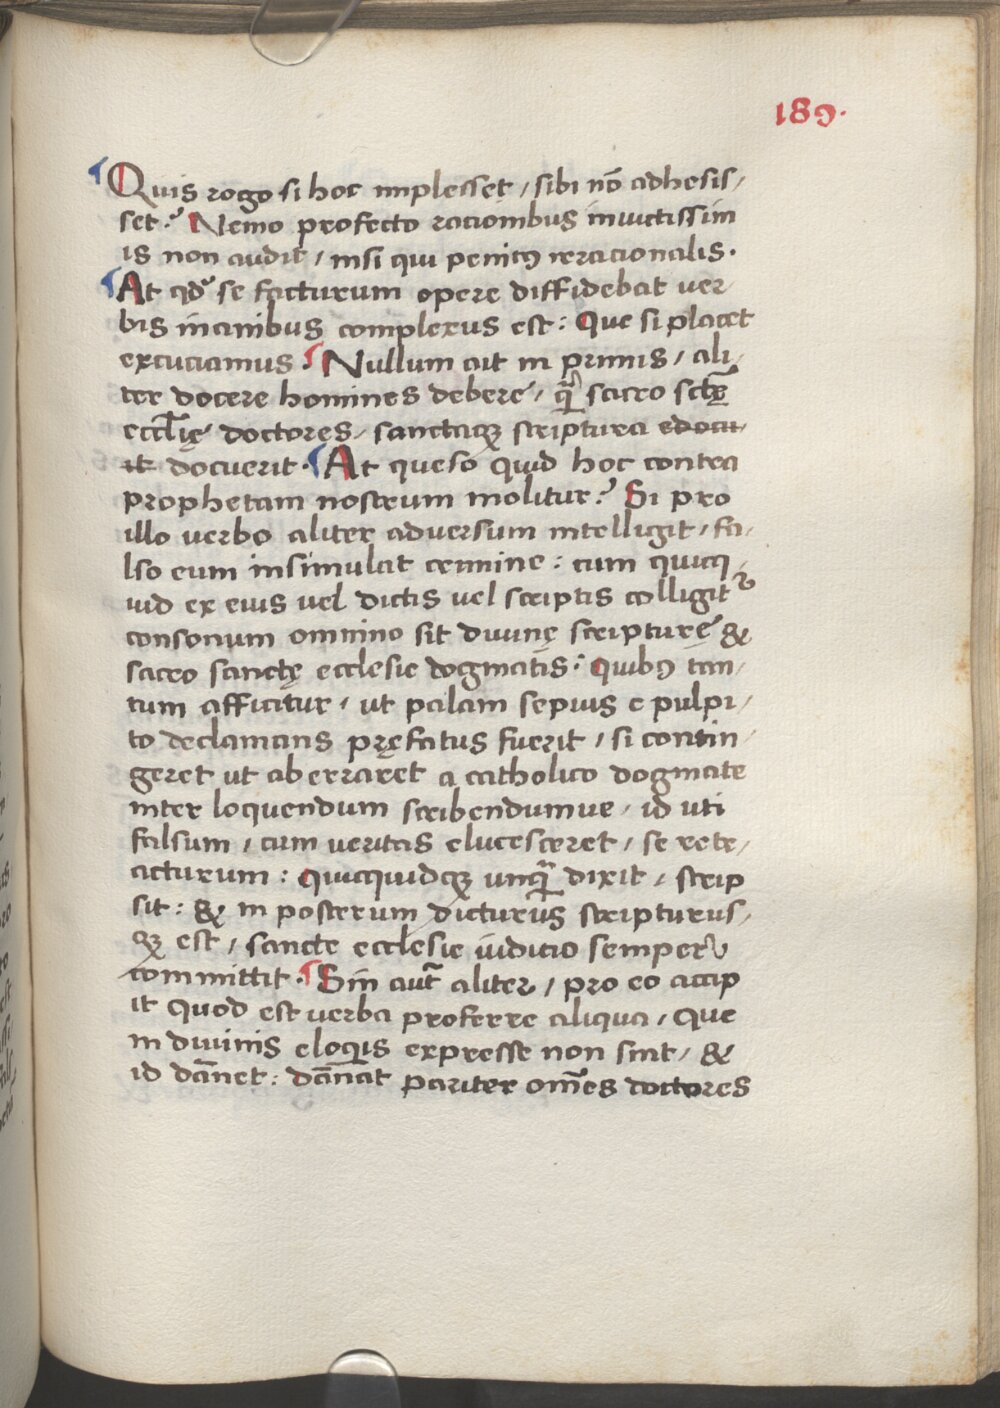 189.
Quis rogo si hoc implesset / sibi nō adhesis/
set? Nemo profecto racionibus inuictissim
is non audit / nisi qui penitꝰ irracionalis.
At qđ se facturum opere diffidebat ver
bis inanibus complexus est: Que si placet
excuciamus. Nullum ait in primis / ali/
ter docere homines debere / q̄ sacro sctę
eccl̄ię doctores / sanctaqꝫ scriptura edocu
it docuerit. At queso quid hoc contra
prophetam nostrum molitur? Si pro
illo verbo aliter adversum intelligit / fa/
lso eum insimulat crimine: cum quicq/
uid ex eius vel dictis vel scriptis colligit᷑
consonum omnino sit diuinę scripturę &
sacro sanctę ecclesie dogmatis: Quibꝰ tan/
tum afficitur / ut palam sepius e pulpi/
to declamans pręfatus fuerit / si contin/
geret ut aberraret a catholico dogmate
inter loquendum scribendumue / id uti
falsum / cum veritas elucesceret / se retr/
acturum: quicquidqꝫ unq̄ dixit / scrip
sit: & in posterum dicturus scripturus/
qꝫ est / sancte ecclesie iuditio semper
committit. Sin aut̄ aliter / pro eo accip
it quod est verba proferre aliqua / que
in diuinis eloqis expresse non sint / &
id dānet: dānat pariter om̄es doctores